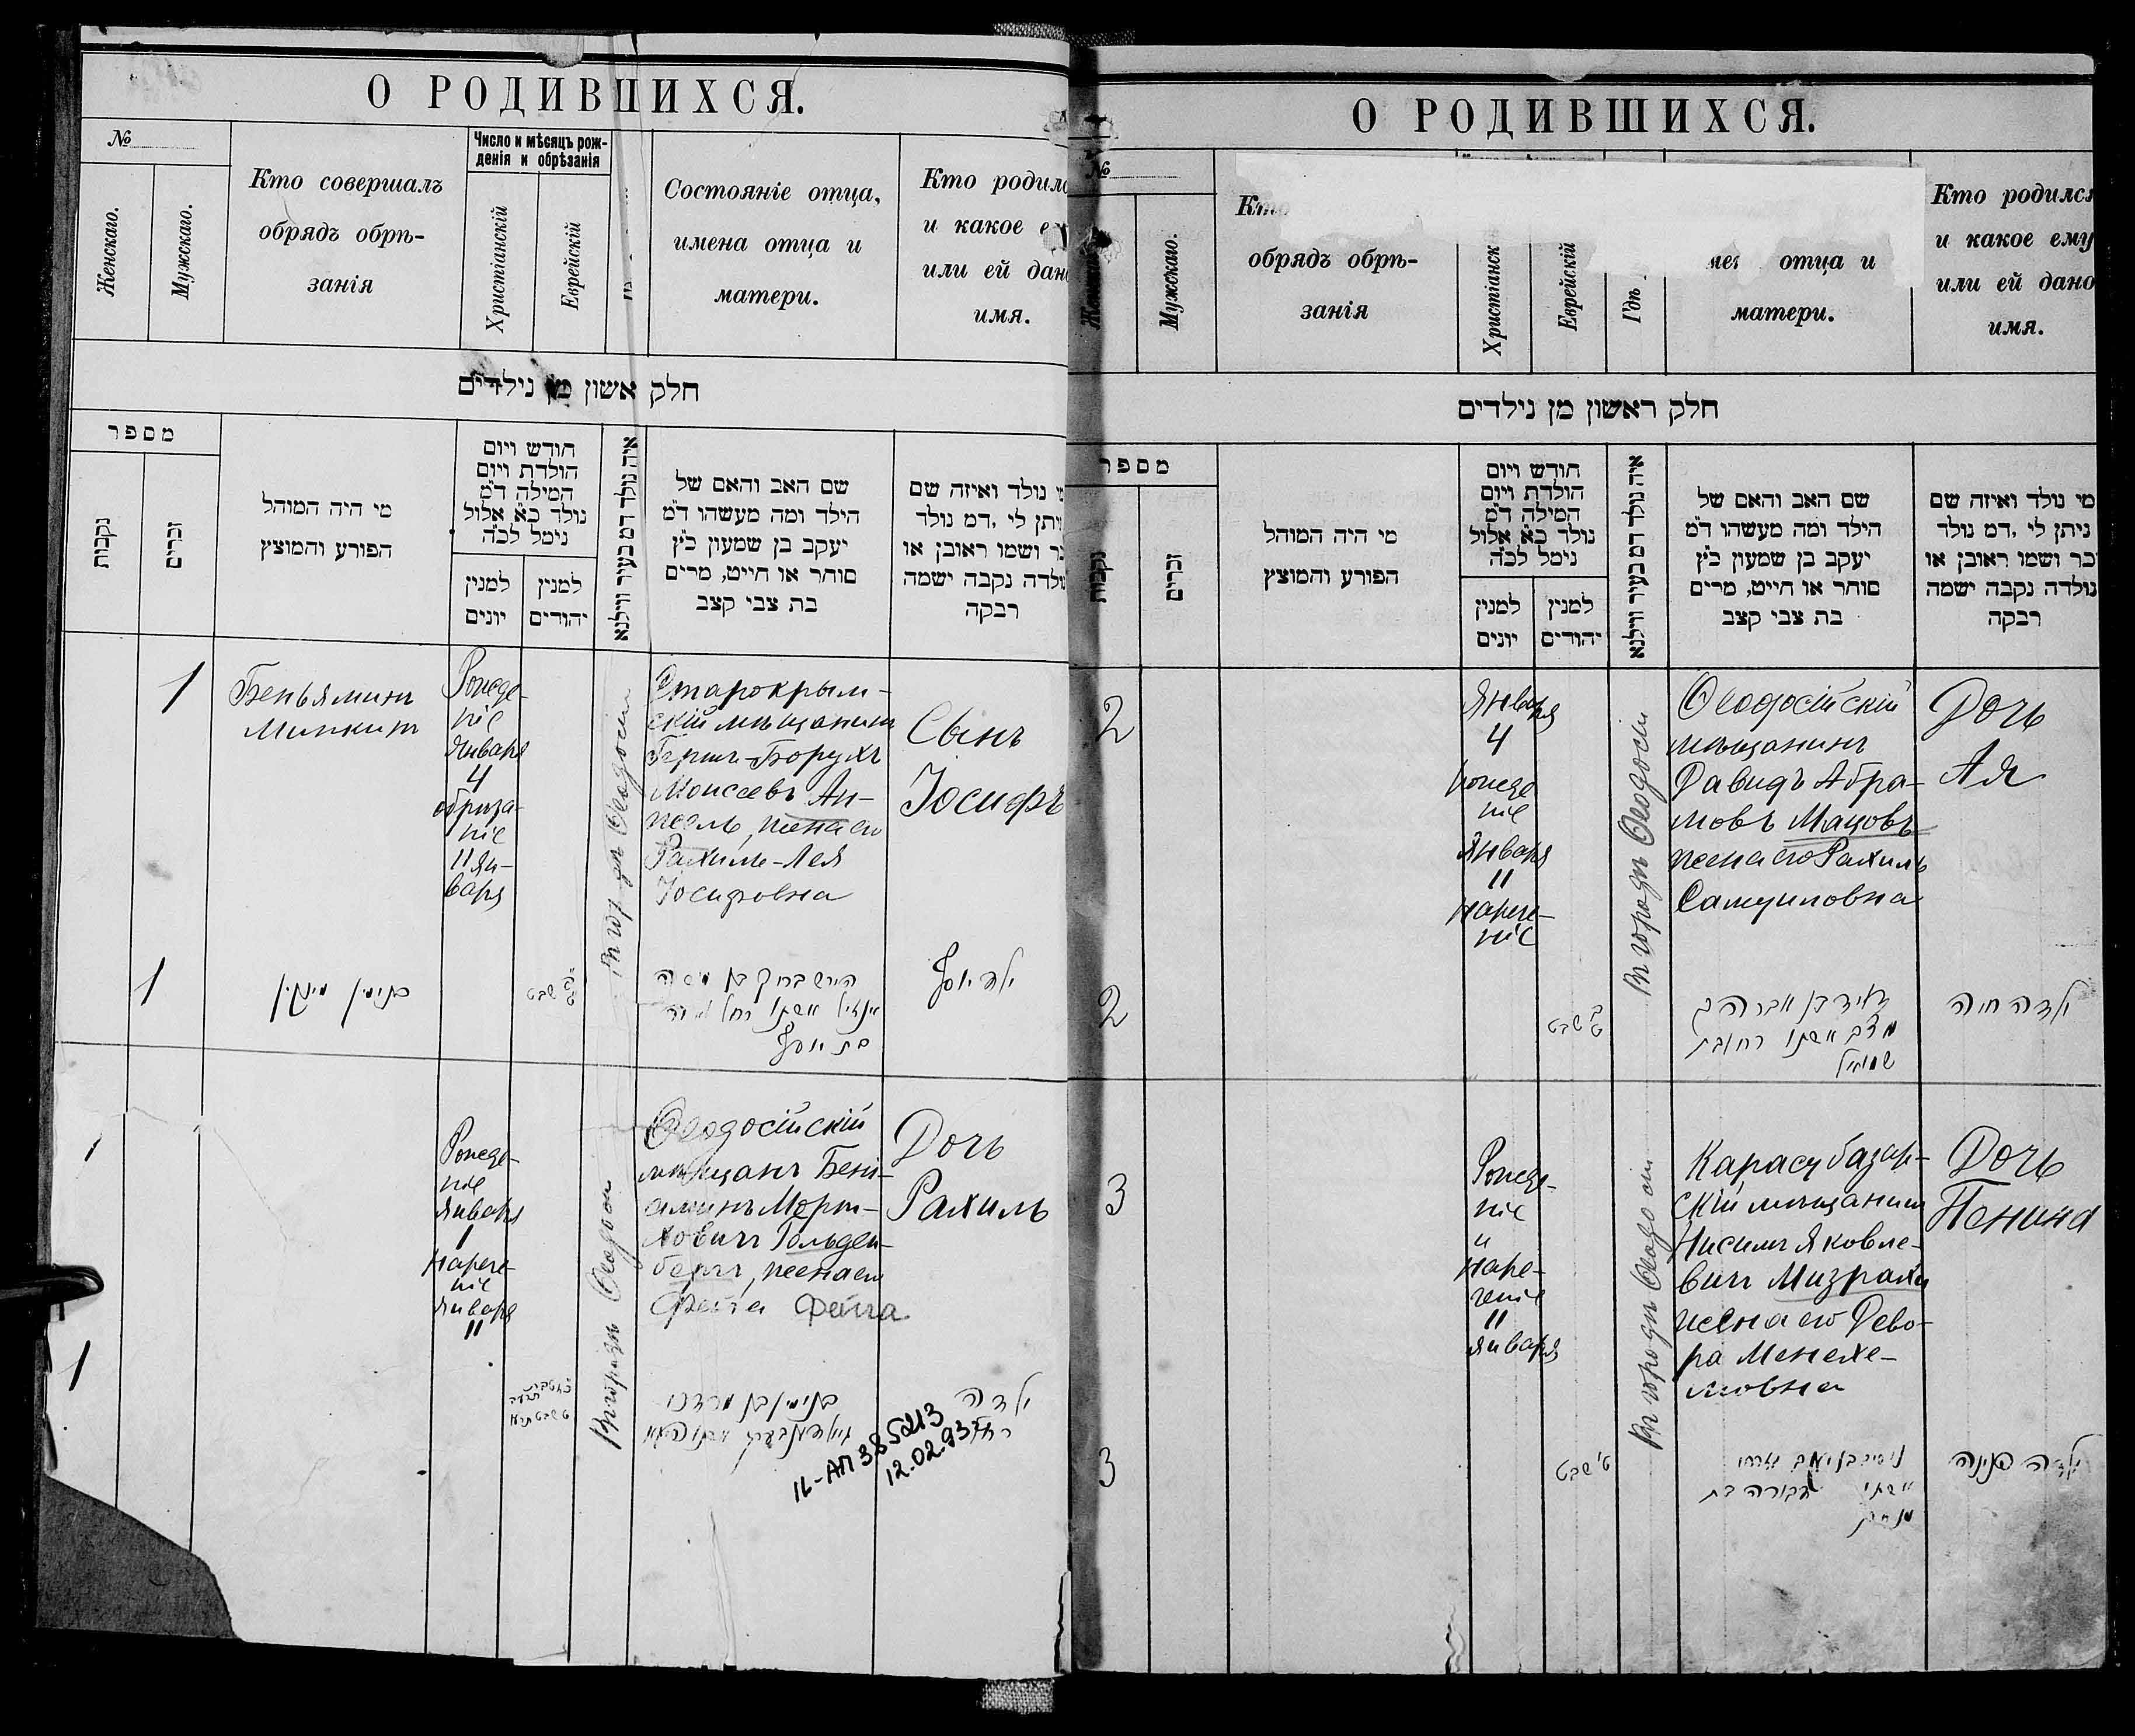 О РОДИВШИХСЯ.
№
Женскаго.
Мужскаго.
Кто совершалъ
обрядъ обрѣ-
занія
Число и мѣсяцъ рож-
денія и обрѣзанія
Христіанскій
Еврейскій
Состояніе отца,
имена отца и
матери.
Кто родилс
и какое е
или ей дан
имя.
חלק אשון מן נילדים
מספר
נקבות
זכרים
מי היה המוהל
הפורע והמוצץ
חודש ויום
הולדת ויום
המילה ד״מ
נולד כ״א אלול
נימל לכ״ה
למנין
יונים
למנין
יהודים
איה נולד דמ בעיר ווילנא
שם האב והאם של
הילד ומה מעשהו ד״מ
יעקב בן שמעון כ״ץ
סוחר או חייט, מרים
בת צבי קצב
נולד ואיזה שם
יתן לי ,דמ נולד
כר ושמו ראובן או
ולדה נקבה ישמה
רבקה
1
Беньяминъ
Минкинъ
Рожде-
ніе
Января
4
обрѣза-
ніе
11 Ян-
варя
Въ городѣ Ѳеодосіи
Старокрым-
скій мѣщанинъ
Гершъ-Борухъ
Моисеевъ Ан-
жель, жена его
Рахиль-Лея
Іосифовна
Сынъ
Іосифъ
1
בנימין מינקין
שבט
הירש ברוך בן משה
אנזיל אשתו רחל לאה
בת יוסף
ילד יוסף
1
Рожде-
ніе
Января
1
Нарече-
ніе
Января
11
Въ городѣ Ѳеодосіи
Ѳеодосійскій
мѣщанъ Бені-
аминъ Морт-
ховичъ Гольден-
бергъ, жена его
Фейга Фейга
Дочь
Рахиль
1
בנימין בן מרדכי
גולדענבערג אשתו פייגא
ילדה
רחל
IL-АП 385213
12.02.93
О РОДИВШИХСЯ.
№
Мужскаго.
Кто
обрядъ обрѣ-
занія
Христіанск
Еврейскій
Гдѣ
отца и
матери.
Кто родился
и какое ему
или ей дано
имя.
חלק ראשון מן נילדים
מספר
נקבות
זכרים
מי היה המוהל
הפורע והמוצץ
חודש ויום
הולדת ויום
המילה ד״מ
נולד כ״א אלול
נימל לכ״ה
למנין
יונים
למנין
יהודים
איה נולד דמ בעיר ווילנא
שם האב והאם של
הילד ומה מעשהו ד״מ
יעקב בן שמעון כ״ץ
סוחר או חייט, מרים
בת צבי קצב
מי נולד ואיזה שם
ניתן לי ,דמ נולד
כר ושמו ראובן או
נולדה נקבה ישמה
רבקה
2
Января
4
рожде
ніе
Января
11
Нарече-
ніе
Въ городѣ Ѳеодосіи
Ѳеодосійскій
мѣщанинъ
Давидъ Абра-
мовъ Мацовъ
жена его Рахиль
Самуиловна
Дочь
Ая
2
שבט
דאיד בן אברהם
אשתו רחל בת
שמואל
ילדה חיה
3
Рожде-
ніе
и
Наре-
ченіе
11
Января
Въ городѣ Ѳеодосіи
Карасубазар-
скій мѣщанинъ
Нисимъ Яковле-
вичъ Мизрахи
жена его Дево-
ра Менахе-
мовна
Дочь
Пенина
3
ט׳ שבט
ניסים בן יעקב מזרחי
אשתו דבורה בת
מנחם
ילדה פנינה